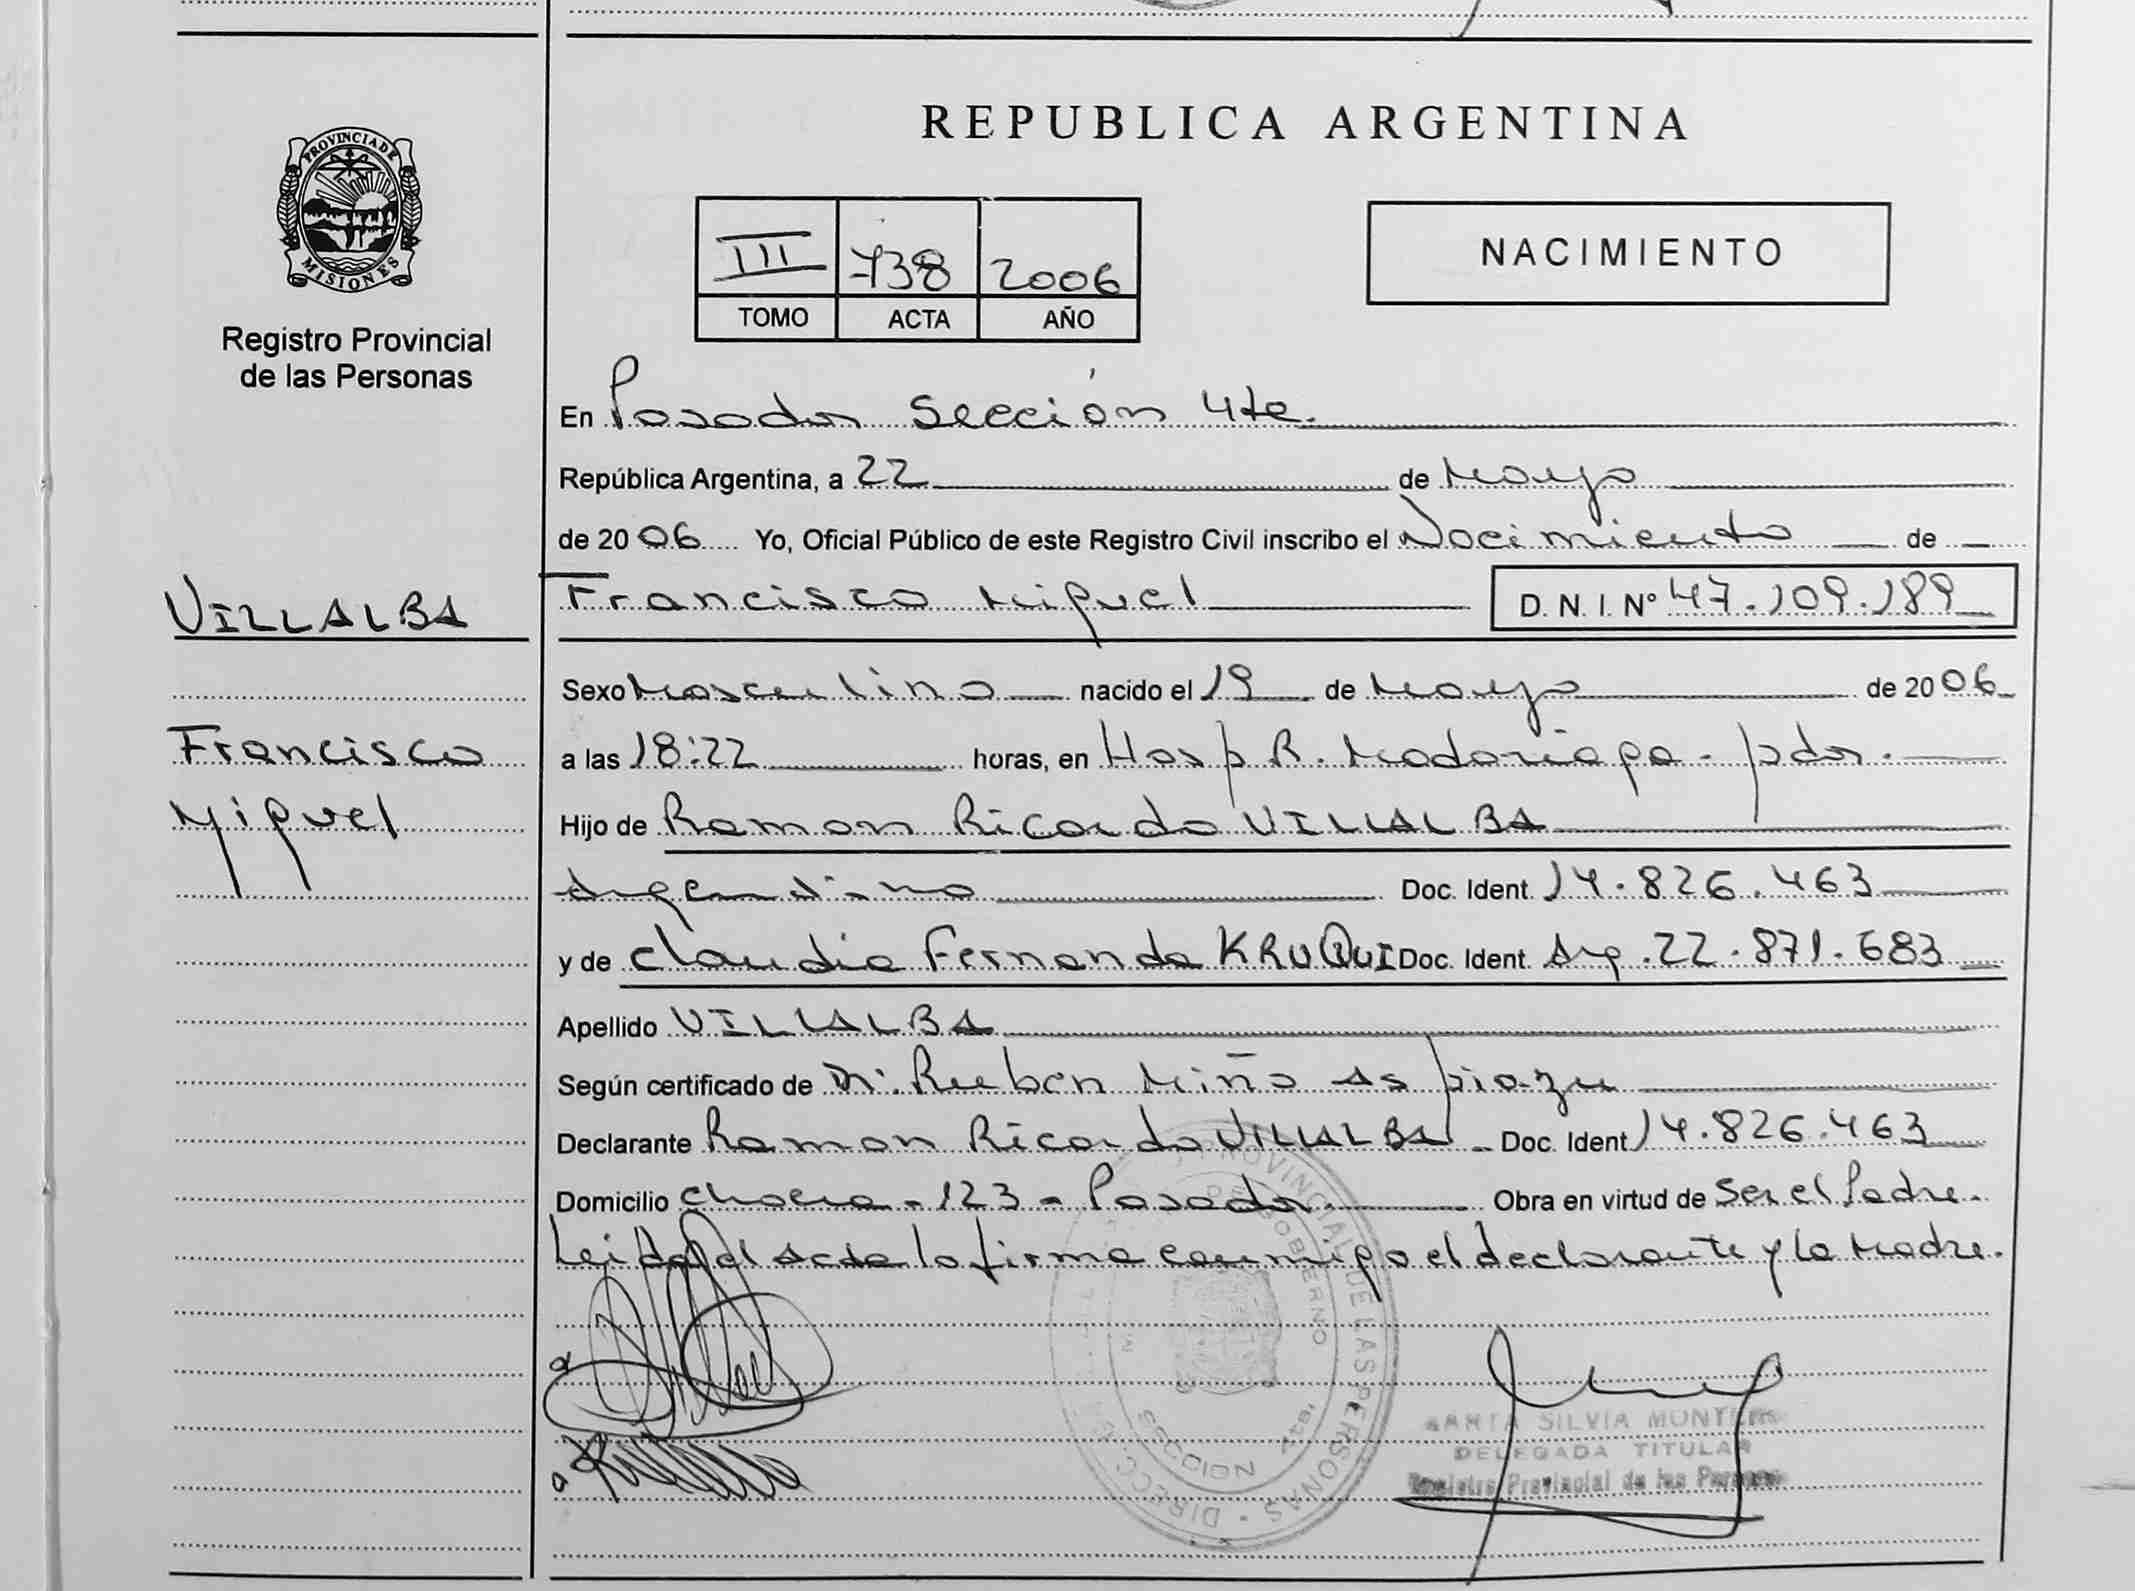 REPUBLICA ARGENTINA
PROVINCIA DE MISIONES
Registro Provincial
de las Personas
III 738 2006
TOMO ACTA AÑO
NACIMIENTO
En Posadas Sección 4ta.
República Argentina, a 22 de Mayo
de 2006 Yo, Oficial Público de este Registro Civil inscribo el Nacimiento de
VILLALBA
Francisco Miguel D. N. I. Nº 47.109.189
Sexo Masculino nacido el 19 de Mayo de 2006
Francisco
Miguel
a las 18:22 horas, en Hosp R. Madariaga - pdas.
Hijo de Ramon Ricardo VILLALBA
Argentino Doc. Ident. 14.826.463
y de Claudia Fernanda KRUQUI Doc. Ident. Arg. 22.871.683
Apellido VILLALBA
Según certificado de Dr. Ruben Miño As piazu
Declarante Ramon Ricardo VILLALBA - Doc. Ident 14.826.463
Domicilio chacra - 123 - Posadas. Obra en virtud de Ser el Padre.
Leida el Acta la firma conmigo el declarante y la Madre.
SILVIA
DELEGADA TITULAR
Registro Provincial de las Personas